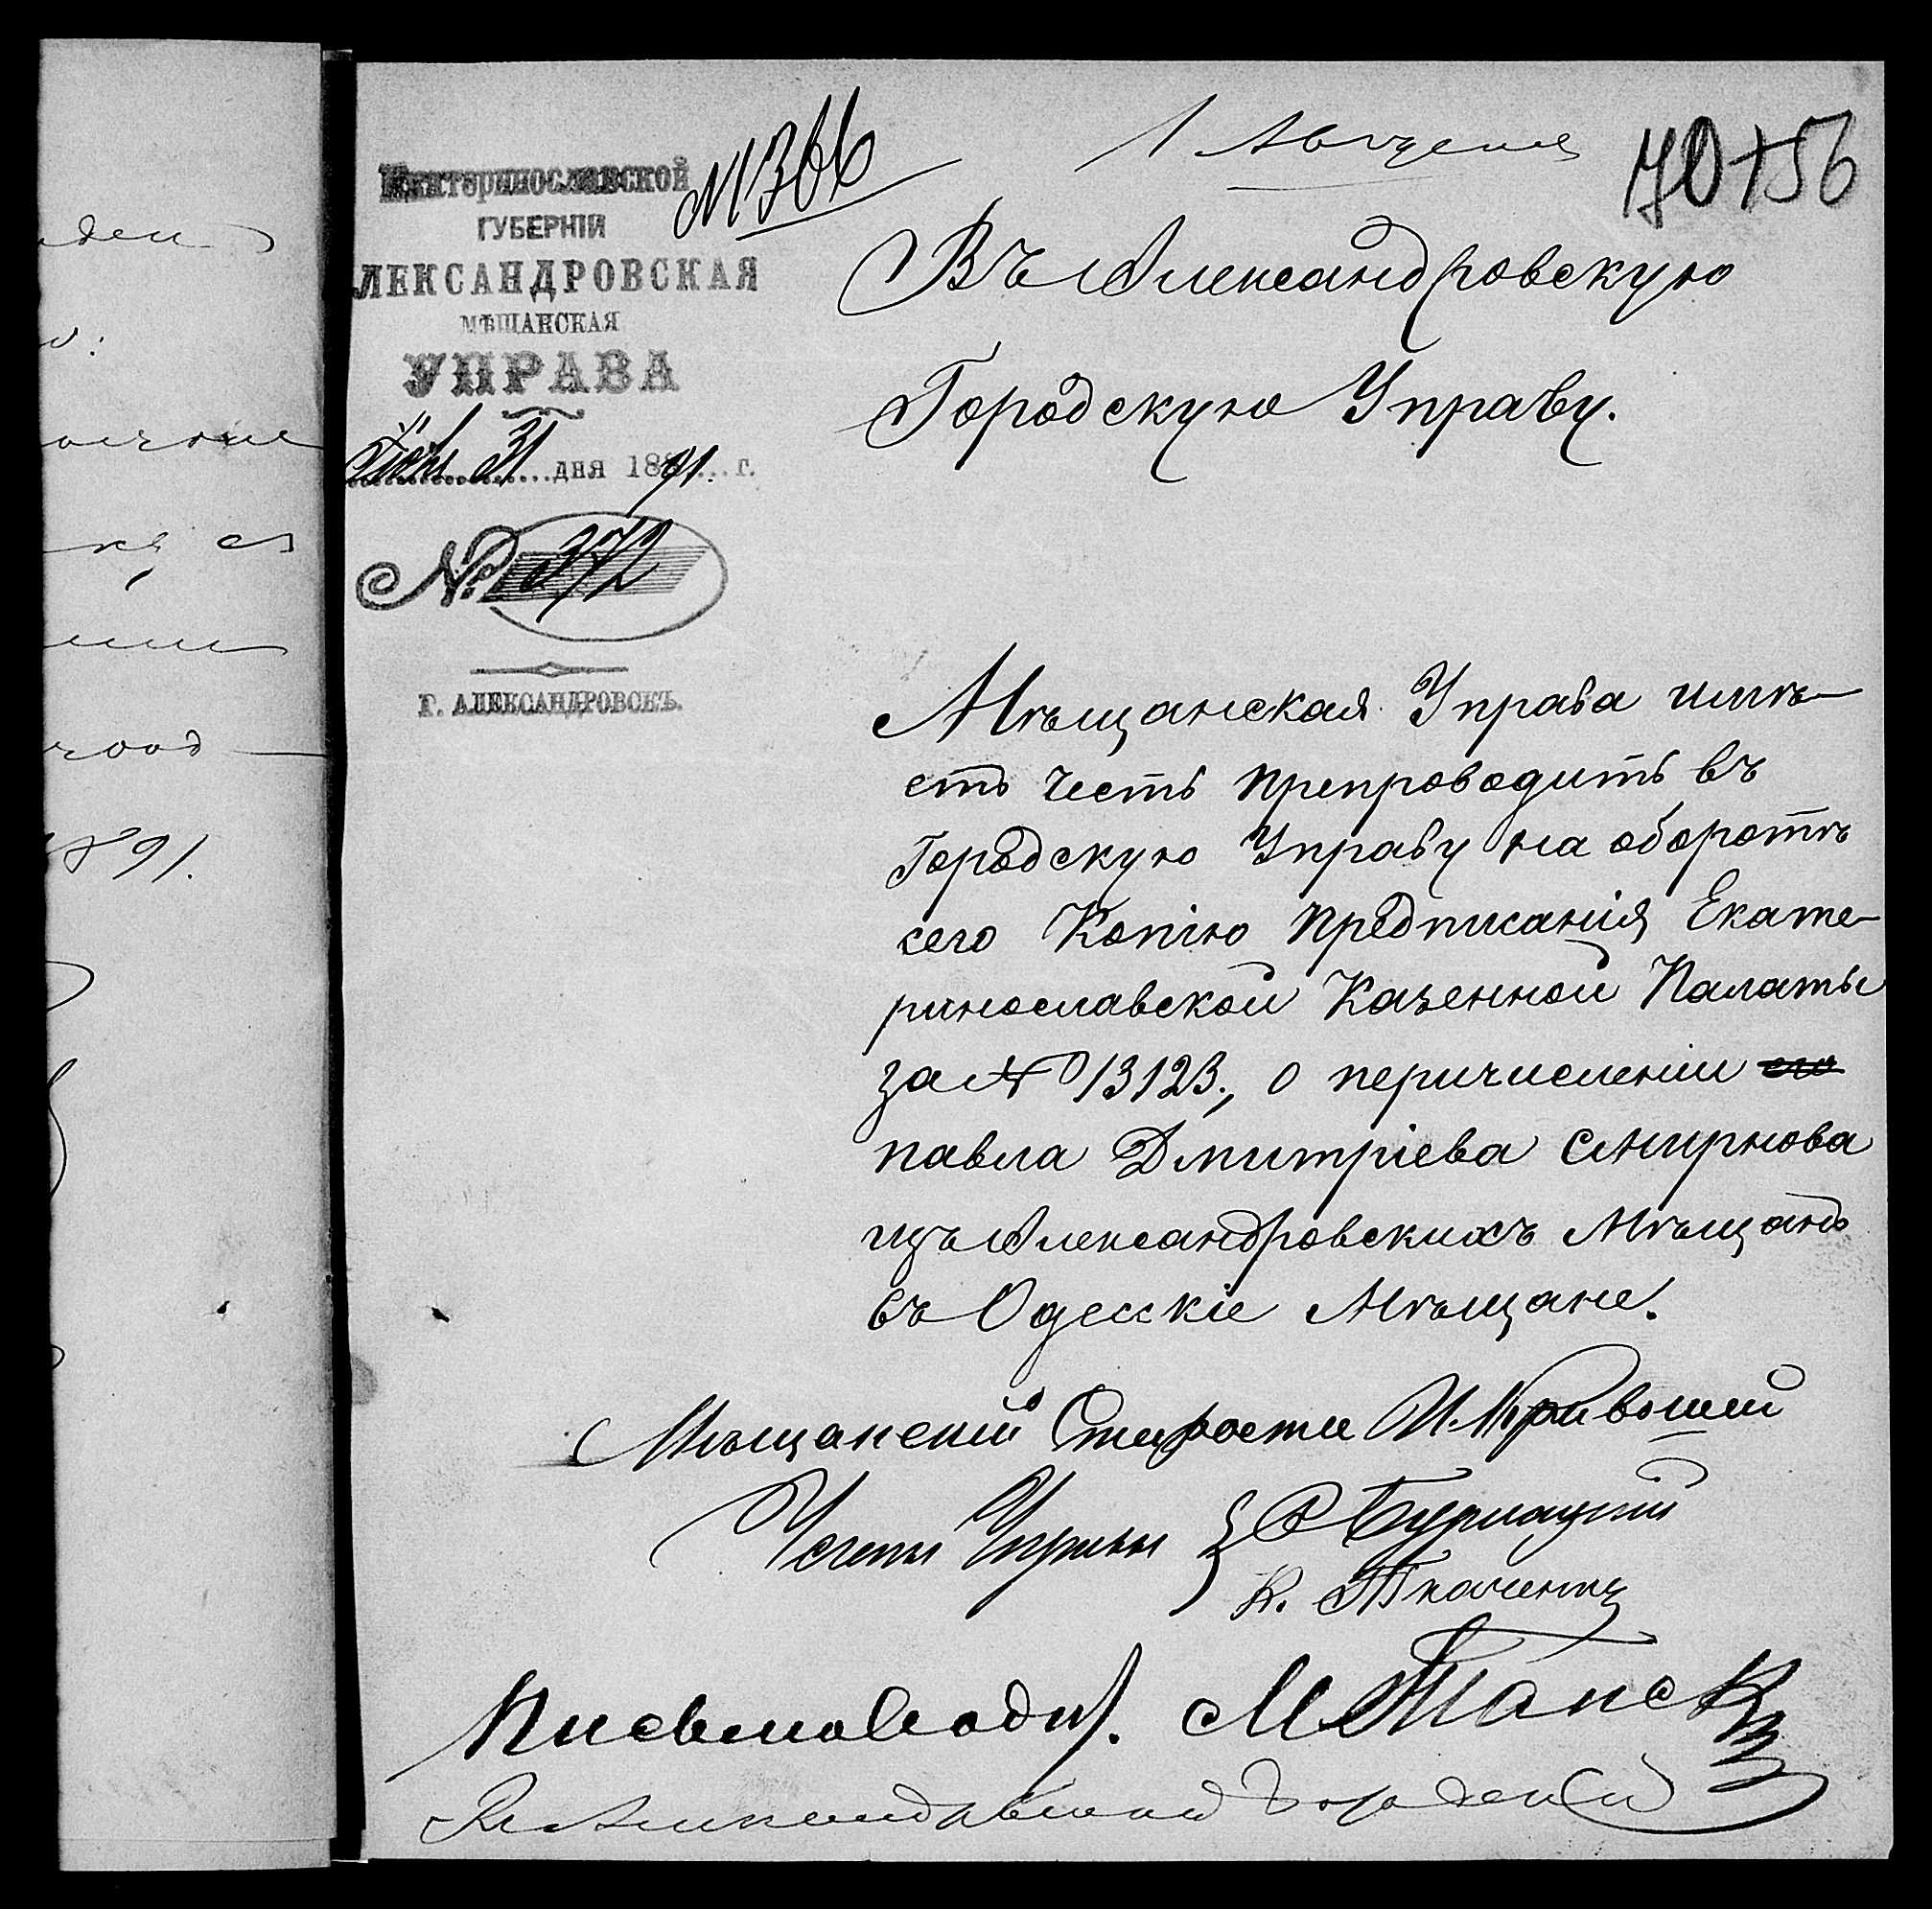 ден
о:
кѣ
1891.
Екатеринославской
ГУБЕРНІИ
АЛЕКСАНДРОВСКАЯ
МѢЩАНСКАЯ
УПРАВА
31 дня 1891 г.
№ 372
Г. АЛЕКСАНДРОВСКЪ.
№1366
1 Августа
70 156
Въ Александровскую
Городскую Управу.
Мѣщанская Управа имѣ-
етъ честь препроводить въ
Городскую Управу на оборотѣ
сего Копію предписанія Екате-
ринославской Казенной Палаты
за № 13123., о перичисленіи его
павла Дмитріева Смирнова
изъ Александровскихъ Мѣщанъ
въ Одесскіе Мѣщане.
Мѣщанскій Староста И. Кривошей
Члены Управы } Бурлацкій
К. Ткаченко
Письмовод. М Танск